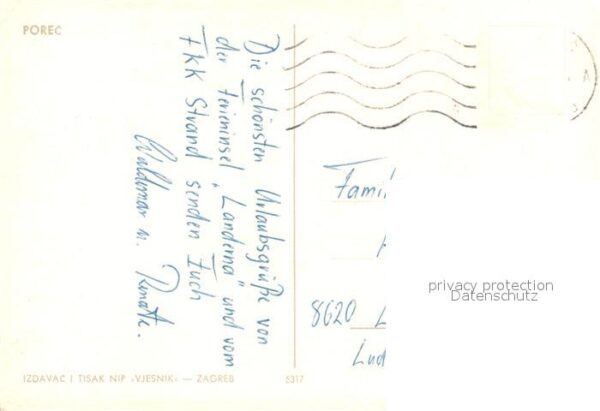 POREC
Die schönsten Urlaubsgrüße von
der Ferieninsel „Landerna" und vom
FKK Strand senden Euch
Waldemar u. Renate.
Famil
8620 L
Lud
privacy protection
Datenschutz
IZDAVAC I TISAK NIP »VJESNIK« — ZAGREB
5317